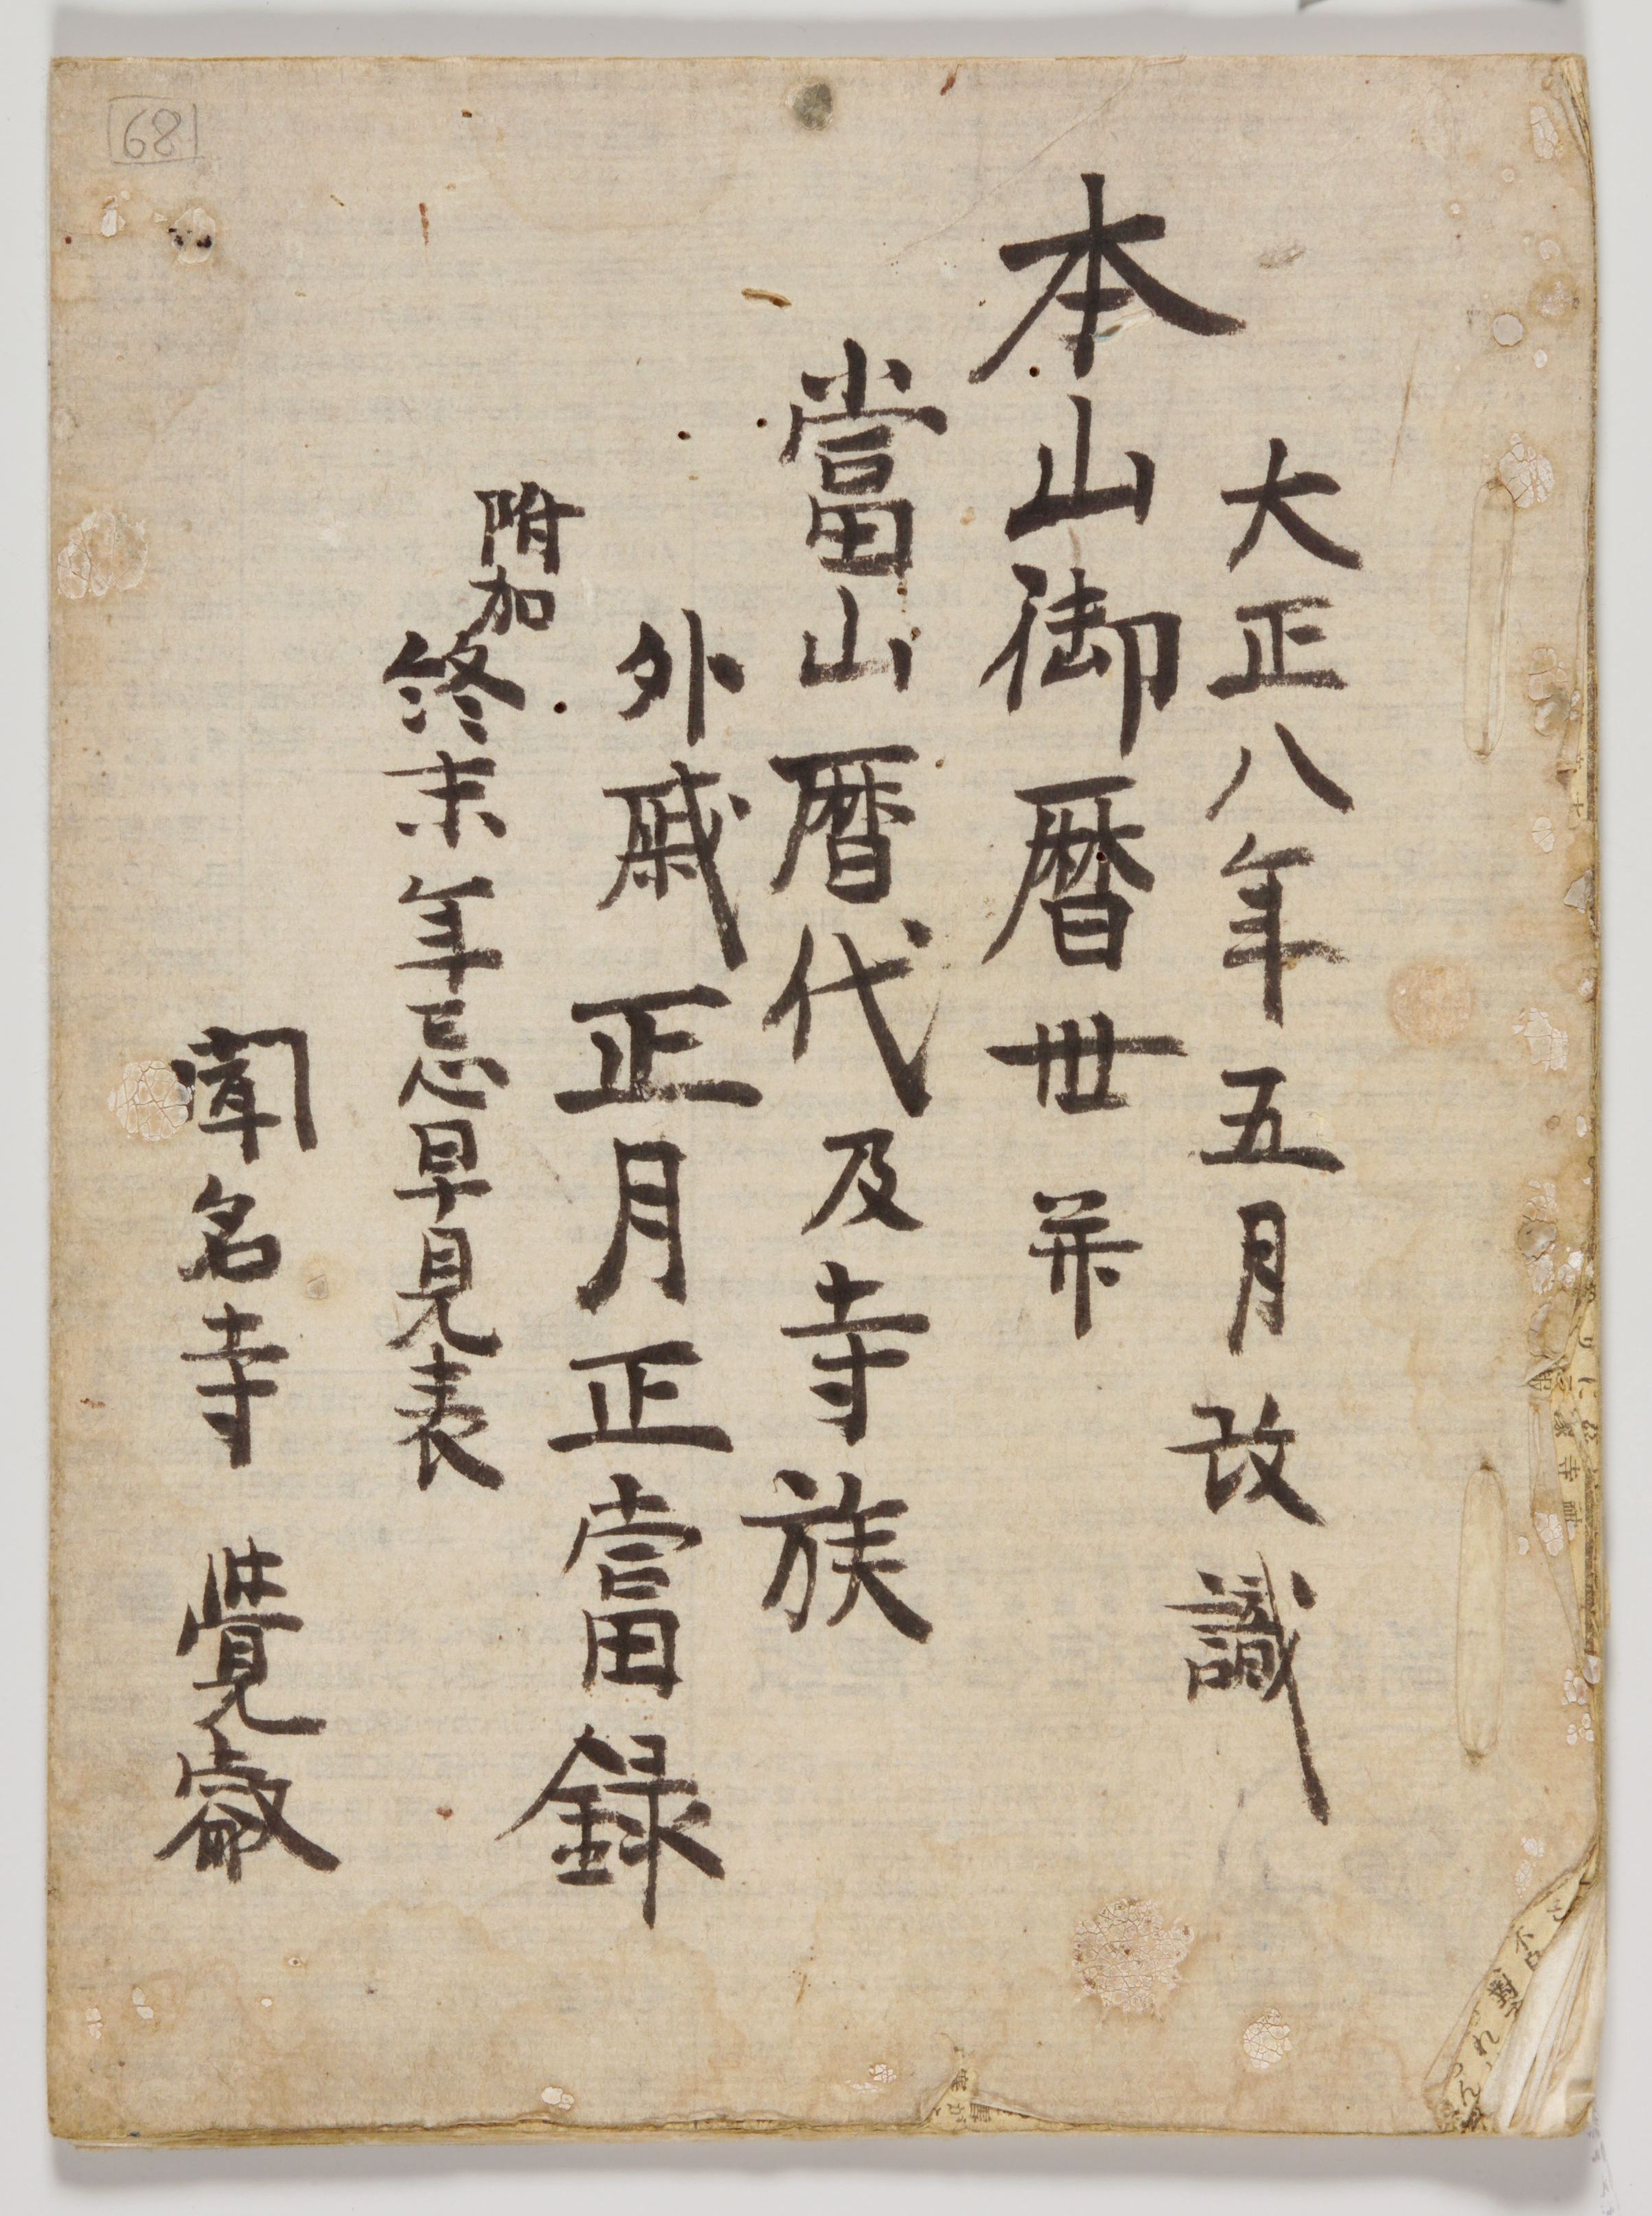 大正八年五月改識
本山御暦世並
當山暦代及寺族
外戚正月正當録
附加
終末年忌早見表
聞名寺 覺
68